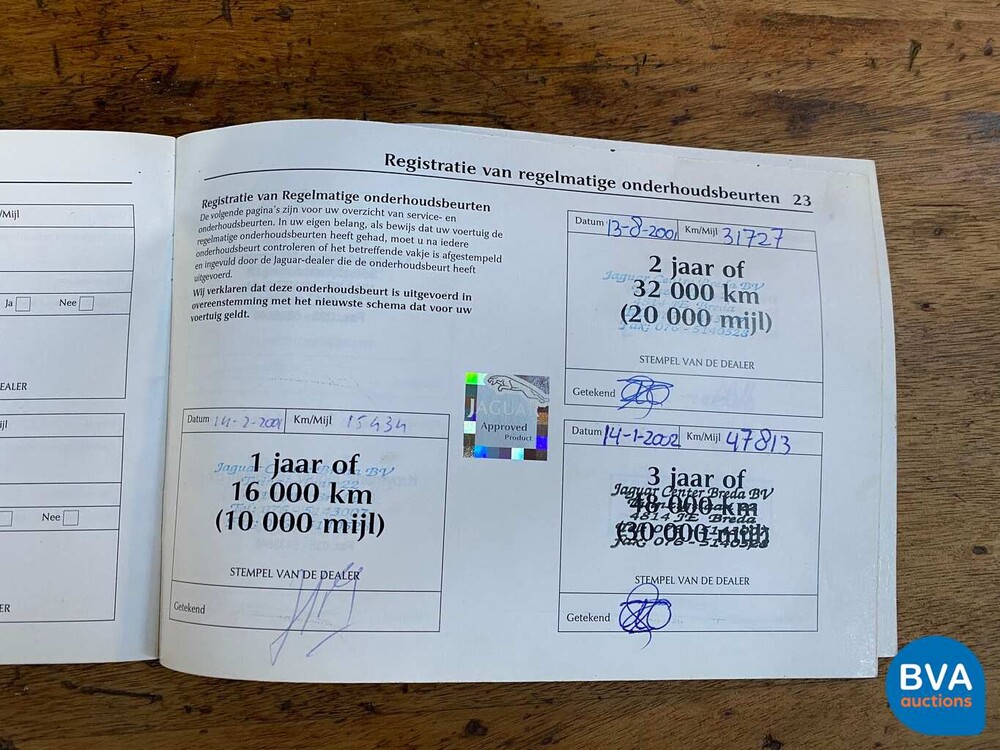 Registratie van regelmatige onderhoudsbeurten 23
/Mijl
Ja
Nee
EALER
ijl
Nee
ER
Registratie van Regelmatige onderhoudsbeurten
De volgende pagina's zijn voor uw overzicht van service- en
onderhoudsbeurten. In uw eigen belang, als bewijs dat uw voertuig de
regelmatige onderhoudsbeurten heeft gehad, moet u na iedere
onderhoudsbeurt controleren of het betreffende vakje is afgestempeld
en ingevuld door de Jaguar-dealer die de onderhoudsbeurt heeft
uitgevoerd.
Wij verklaren dat deze onderhoudsbeurt is uitgevoerd in
overeenstemming met het nieuwste schema dat voor uw
voertuig geldt.
Datum 14-2-2001 Km/Mijl 15434
Jaguar Center Breda BV
1 jaar of
16 000 km
(10 000 mijl)
STEMPEL VAN DE DEALER
Getekend
JAGUAR
Approved
Product
Datum 13-8-2001 Km/Mijl 31727
2 jaar of
Jaguar Center Breda BV
32 000 km
(20 000 mijl)
Fax: 076 - 5140528
STEMPEL VAN DE DEALER
Getekend
Datum 14-1-2002 Km/Mijl 47813
3 jaar of
Jaguar Center Breda BV
48 000 km
4814 JE Breda
(30 000 mijl)
Fax: 076 - 5140528
STEMPEL VAN DE DEALER
Getekend
BVA
auctions